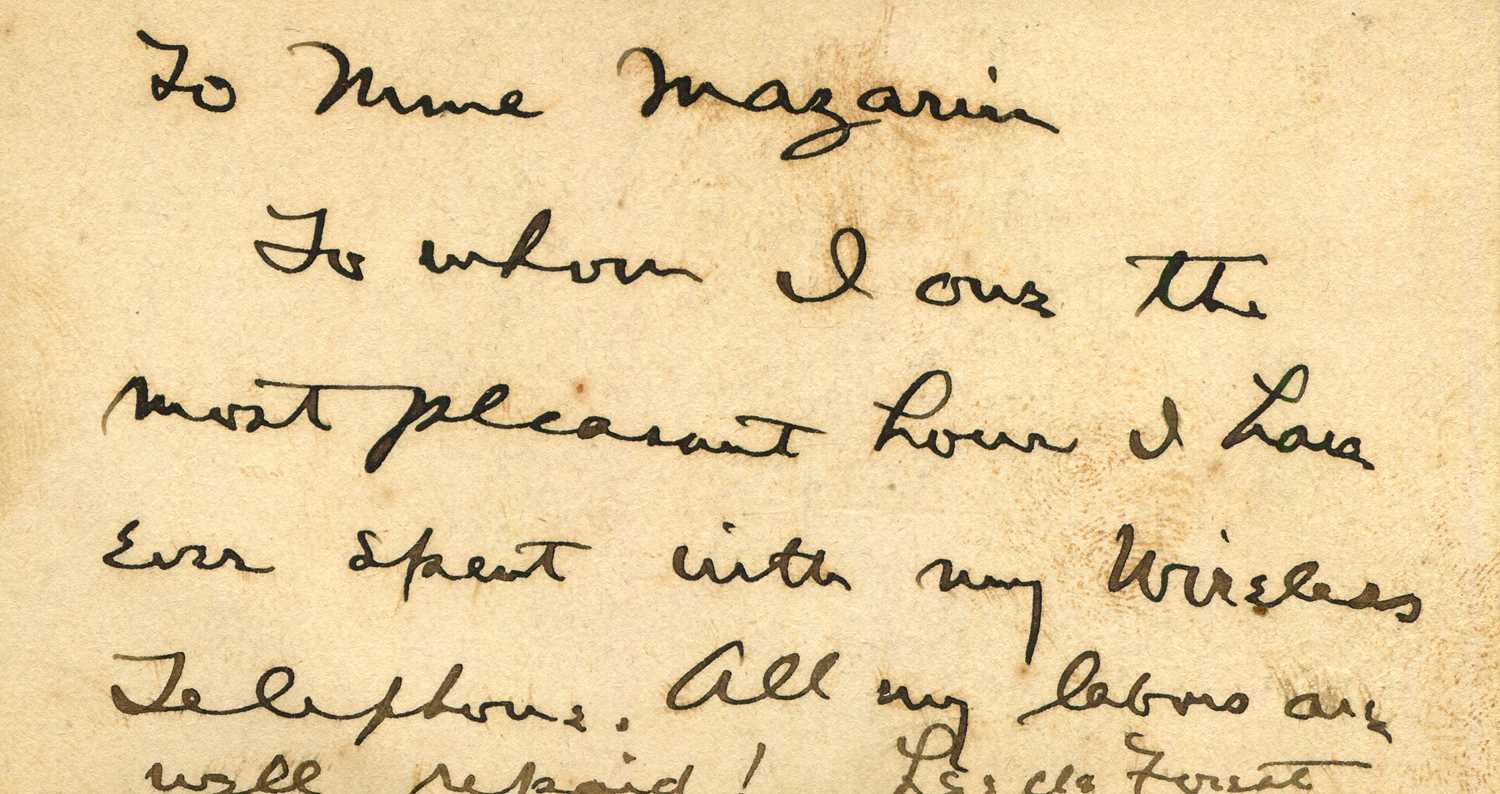 To Mme Mazarin
To whom I owe the
most pleasant hour I have
ever spent with my Wireless
Telephone. All my labors are
well repaid! Lee de Forest